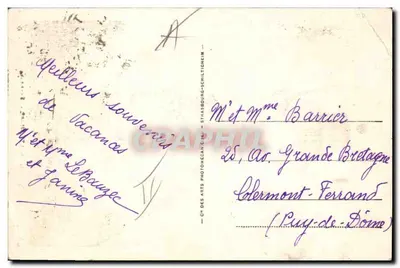 Meilleurs souvenirs
de Vacances
Mr et Mme Le Bouzec
et Janine
Cie DES ARTS PHOTOMÉCANIQUES - STRASBOURG-SCHILTIGHEIM
Mr et Mme Barrier
25, Av. Grande Bretagne
Clermont-Ferrand
(Puy-de-Dôme)